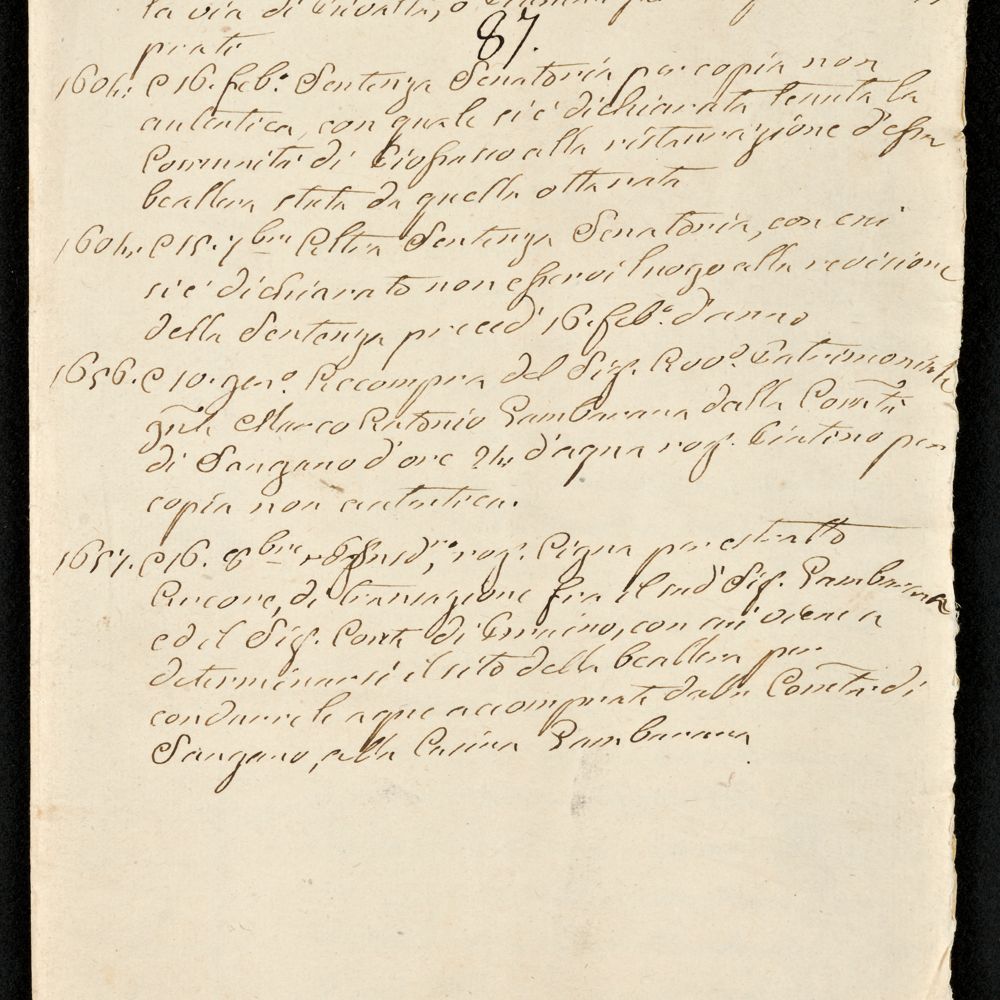 la via di Rivalta, o
prati
87.
1604. e 16. feb.o Sentenza Senatoria per copia non
autentica, con quale si è dichiarata tenuta la
Comunità di Piosasco alla ristaurazione d'essa
bealera stata da quella otturata
1604. e 15. 7bre Altra Sentenza Senatoria, con cui
si è dichiarato non esservi luogo alla revisione
della Sentenza preced.e 16. feb.o d.o anno
1656. e 10. gen.o Accompra del Sig. Patrimoniale
Marco Antonio Gambarana dalla Com.tà
di Sangano d'ore 24. d'aqua rog.
per
copia non autentica.
1657. e 16. 8bre rog. Cigna per estratto
Ancore, di transazione fra il sud.o Sig. Gambarana
ed il Sig. Conte di con cui viene a
determinarsi il sito della bealera per
condurre le aque accomprate dalla Com.tà di
Sangano, alla Cascina Gambarana